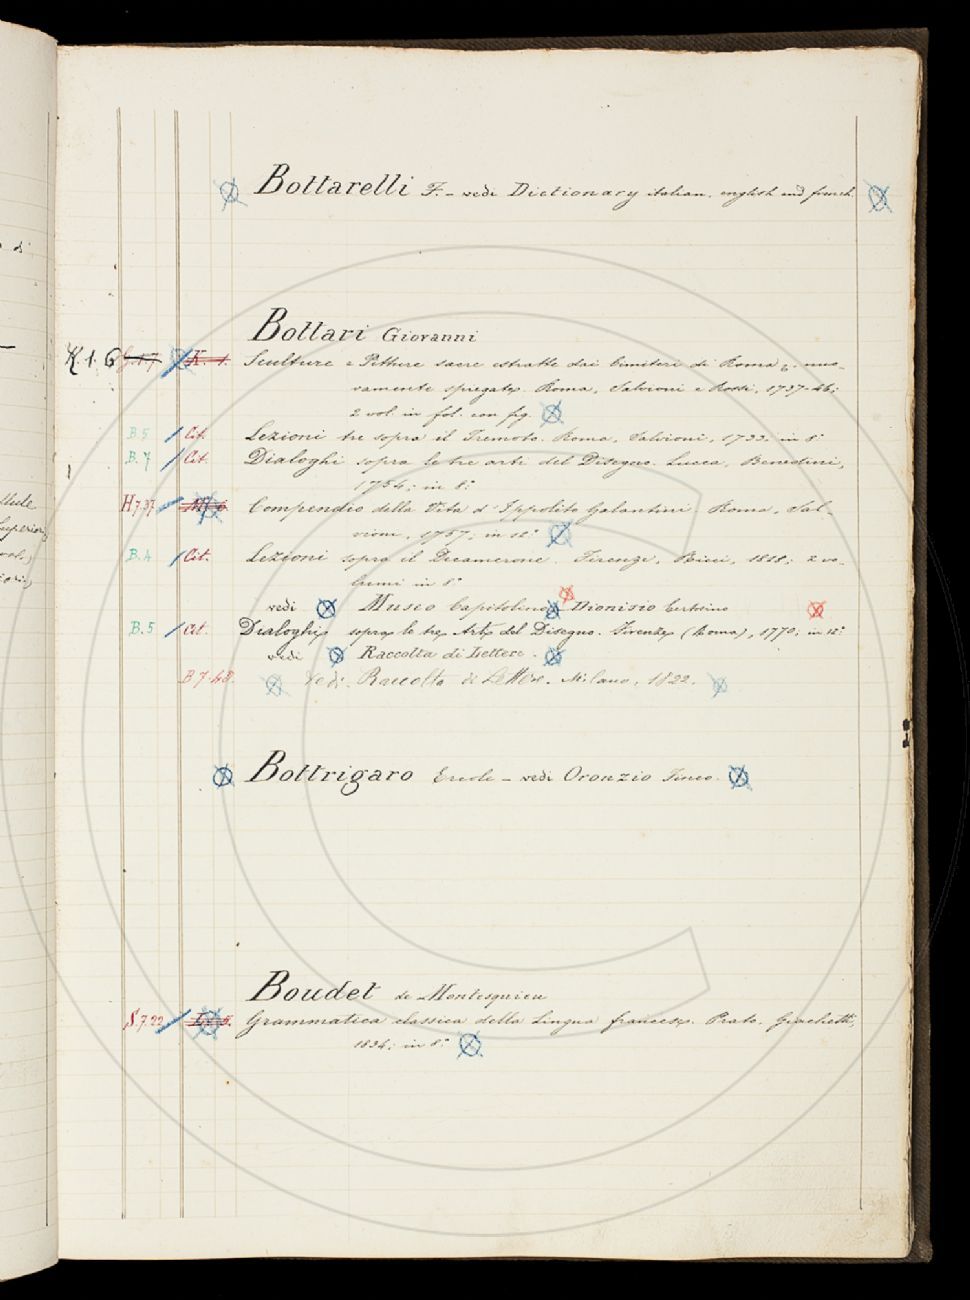 Bottarelli F. - vedi Dictionary italian. english and french.
Bottari Giovanni
K. 1. 6 K. 1. Sculture e Pitture sacre estratte dai Cimiteri di Roma &. nuo-
vamente spiegate. Roma, Salvioni e Rossi, 1737-46;
2 vol. in fol. con fig.
B 5 Cit. Lezioni tre sopra il Tremoto. Roma, Salvioni, 1733. in 8°
B. 7 Cit. Dialoghi sopra le tre arti del Disegno. Lucca, Benedini,
1754; in 8.°
H 7.37 Compendio della Vita d'Ippolito Galantini Roma, Sal-
vioni, 1757; in 12.°
B. 4 Cit. Lezioni sopra il Decamerone. Firenze, Ricci, 1818; 2 vo-
lumi in 8°
vedi Museo Capitolino - Dionisio
B. 5 Cit. Dialoghi sopra le tre Arti del Disegno. Firenze (Roma), 1770; in 12.°
vedi Raccolta di Lettere.
B 7.48. Vedi. Raccolta di Lettere. Milano, 1822.
Bottrigaro Ercole - vedi Oronzio Fineo.
Boudet de Montesquieu
S. 7.22 Grammatica classica della Lingua francese. Prato. Giachetti,
1834; in 8.°